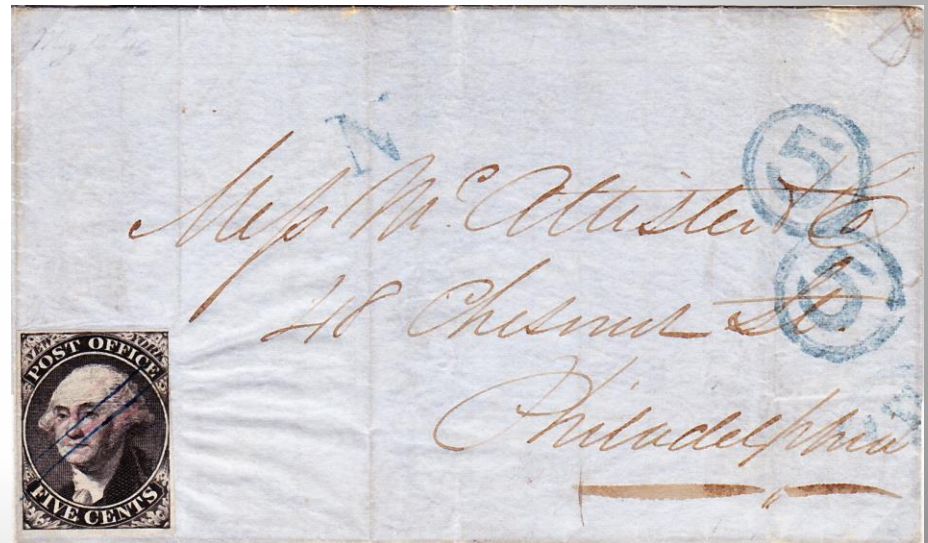 N
5
Mess McAllister & Co
5
48 Chesnut St.
Philadelphia
POST OFFICE
FIVE CENTS